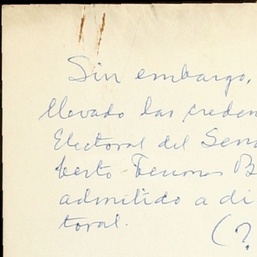 Sin embargo,
llevado las creden
Electoral del Sena
berto Tecunas B
admitido a di
toral.
(?